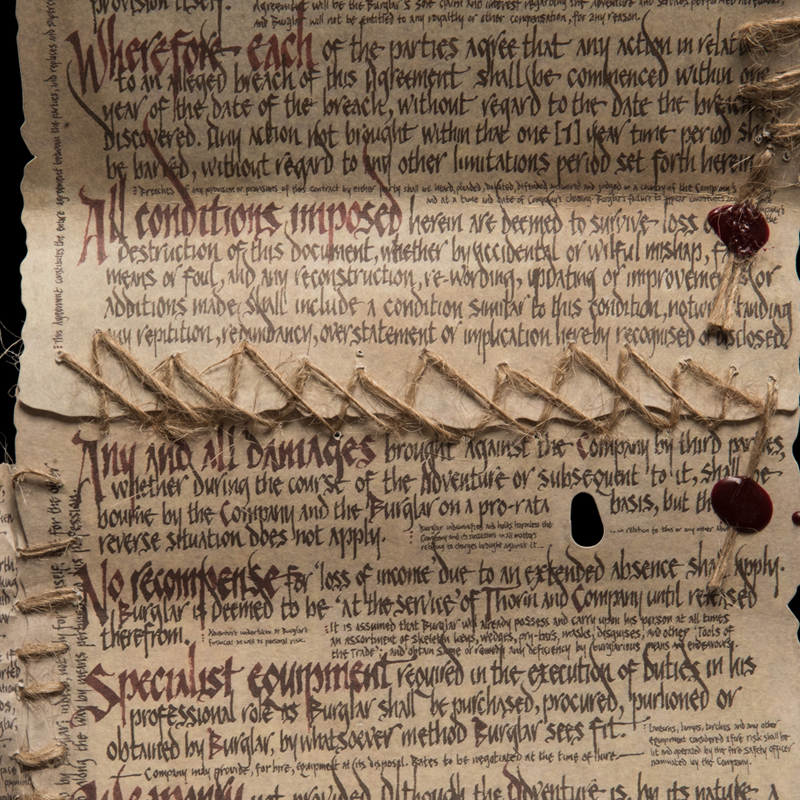 provision itself.
Agreement will be the Burglar's sole claim and interest regarding the Adventure and services performed hereunder,
and Burglar will not be entitled to any royalty or other compensation, for any reason.
Wherefore each of the parties agree that any action in relation
to an alleged breach of this Agreement shall be commenced within one
year of the date of the breach, without regard to the date the breach
discovered. Any action not brought within that one [1] year time period sh
be barred, without regard to any other limitations period set forth herein
Breaches any provision or provisions of this Contract by either party shall be heard, pleaded, debated, defended and judged in a country of the Company's
and at a time and date of Company's choosing.
All conditions imposed herein are deemed to survive loss o
destruction of this document, whether by accidental or wilful mishap, f
means or foul, and any reconstruction, re-wording, updating or improvements or
additions made, shall include a condition similar to this condition, notwi tanding
any repitition, redundancy, overstatement or implication hereby recognised or disclosed.
This Agreement constitutes the entire agreement between the parties, and replaces and
Any and all damages brought against the Company by third parties,
whether during the course of the Adventure or subsequent to it, shall be
bourne by the Company and the Burglar on a pro-rata basis, but th
reverse situation does not apply.
Burglar indemnifies and holds harmless the
Company and its successors in all matters
relating to charges brought against it
in relation to this or any other
No recompense for 'loss of income' due to an extended absence shall apply.
Burglar is deemed to be 'at the service' of Thorin and Company until released
therefrom.
Adventure undertaken at Burglar's
financial as well as personal risk.
It is assumed that Burglar will already possess and carry upon his person at all times
an assortment of skeleton keys, wedges, pry-bars, masks, disguises, and other 'Tools of
the Trade'; and obtain same or remedy any deficiency by burglarious means and endeavours.
Specialist equipment required in the execution of duties in his
professional role as Burglar shall be purchased, procured, purloined or
obtained by Burglar, by whatsoever method Burglar sees fit.
Lanterns, lamps, torches and any other
equipment considered a fire risk shall be
lit and operated by the fire safety officer
nominated by the Company.
Company may provide, for hire, equipment at its disposal. Rates to be negotiated at the time of hire
not provided. Although the Adventure is, by its nature a